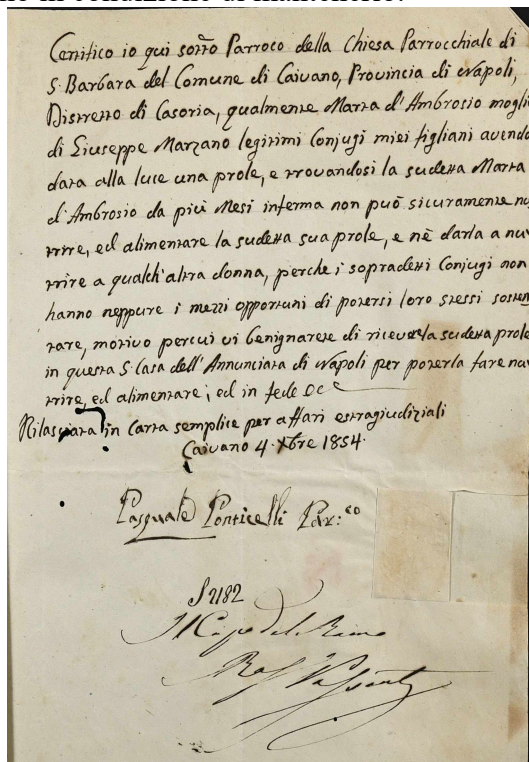 no in condizione di mantenerlo.
Certifico io qui sotto Parroco della Chiesa Parrocchiale di
S. Barbara del Comune di Caivano, Provincia di Napoli,
Distretto di Casoria, qualmente Marta d'Ambrosio mogli
di Giuseppe Marzano legitimi Conjugi miei figliani avendo
data alla luce una prole, e trovandosi la sudetta Marta
d'Ambrosio da più Mesi inferma non può sicuramente nu
trire, ed alimentare la sudetta sua prole, e nè darla a nu
trire a qualch'altra donna, perche i sopradetti Conjugi non
hanno neppure i mezzi opportuni di potersi loro stessi sosten
tare, motivo percui vi benignarete di ricevere la sudetta prole
in questa S. Casa dell'Annunciata di Napoli per poterla fare nu
trire, ed alimentare; ed in fede
Rilasciata in Carta semplice per affari estragiudiziali
Caivano 4. Xbre 1854.
Pasquale Ponticelli Par:co
2182
Il Capo del